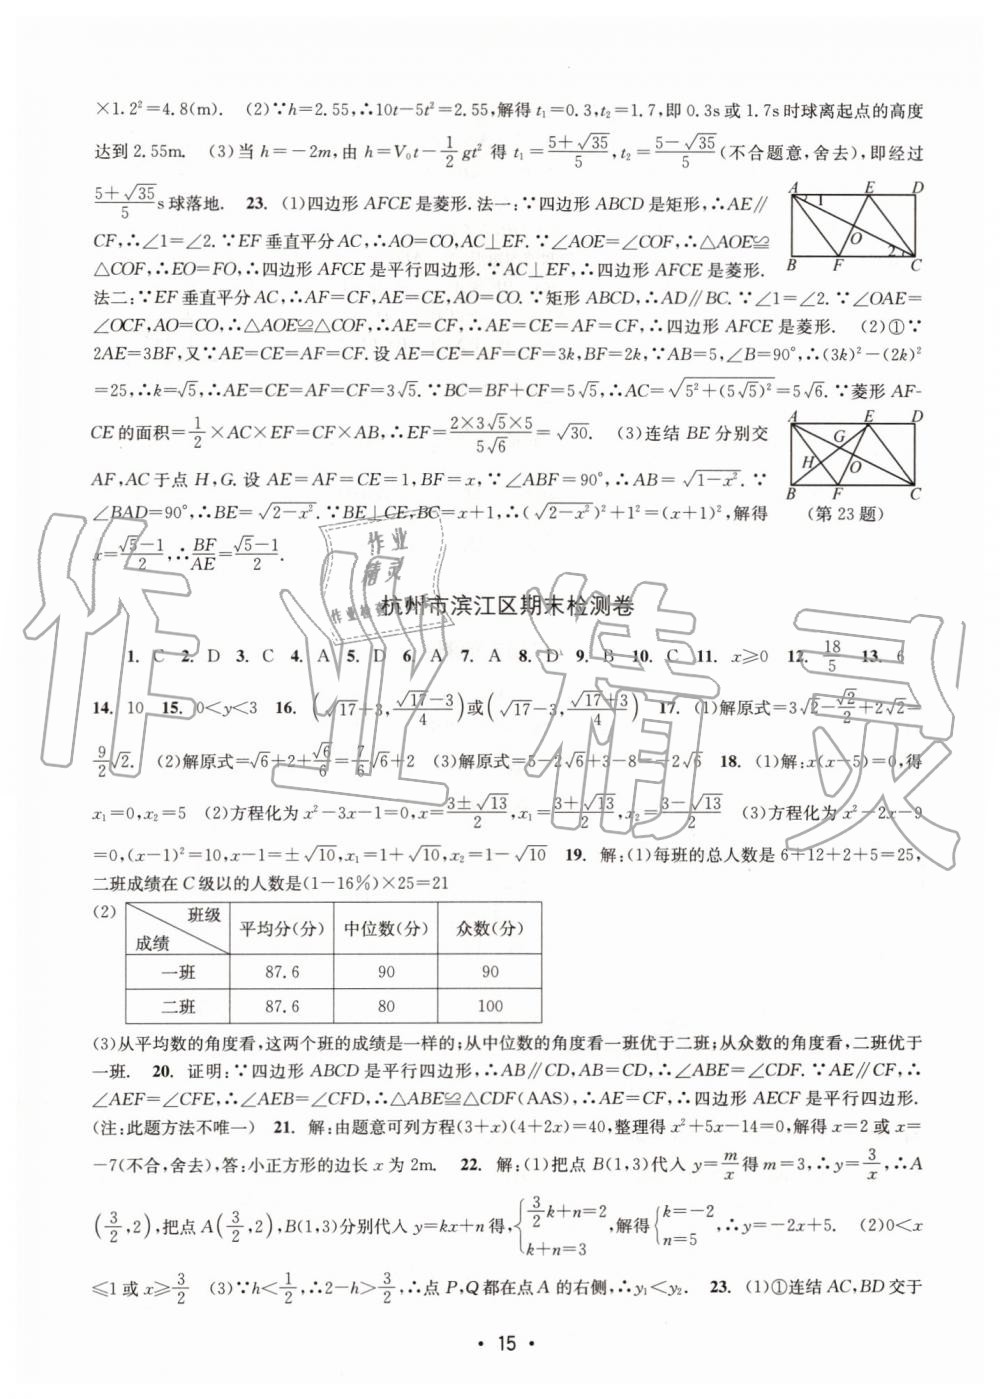 ×1.2²=4.8(m). (2)∵h=2.55,∴10t−5t²=2.55,解得 t₁=0.3,t₂=1.7,即 0.3s或 1.7s时球离起点的高度
达到 2.55m. (3)当 h=−2m,由 h=V₀t−1/2 gt² 得 t₁=(5+√35)/5,t₂=(5−√35)/5(不合题意,舍去),即经过
(5+√35)/5 s球落地. 23. (1)四边形 AFCE 是菱形.法一:∵四边形 ABCD 是矩形,∴AE∥
CF,∴∠1=∠2.∵EF 垂直平分AC,∴AO=CO,AC⊥EF.∵∠AOE=∠COF,∴△AOE≌
△COF,∴EO=FO,∴四边形 AFCE 是平行四边形.∵AC⊥EF,∴四边形 AFCE 是菱形.
A E D 1 O 2 B F C
法二:∵EF 垂直平分AC,∴AF=CF,AE=CE,AO=CO.∵矩形 ABCD,∴AD∥BC.∵∠1=∠2.∵∠OAE=
∠OCF,AO=CO,∴△AOE≌△COF,∴AE=CF,∴AE=CE=AF=CF,∴四边形 AFCE 是菱形. (2)①∵
2AE=3BF,又∵AE=CE=AF=CF.设 AE=CE=AF=CF=3k,BF=2k,∵AB=5,∠B=90°,∴(3k)²−(2k)²
=25,∴k=√5,∴AE=CE=AF=CF=3√5.∵BC=BF+CF=5√5,∴AC=√(5²+(5√5)²)=5√6.∵菱形 AF-
CE 的面积=1/2×AC×EF=CF×AB,∴EF=(2×3√5×5)/(5√6)=√30. (3)连结 BE 分别交
AF,AC于点 H,G.设 AE=AF=CF=CE=1,BF=x,∵∠ABF=90°,∴AB=√(1−x²).∵
∠BAD=90°,∴BE=√(2−x²).∵BE⊥CE,BC=x+1,∴(√(2−x²))²+1²=(x+1)²,解得
x=(√5−1)/2,∴BF/AE=(√5−1)/2.
A E D G H O B F C
(第 23 题)
杭州市滨江区期末检测卷
1. C 2. D 3. C 4. A 5. D 6. A 7. A 8. D 9. B 10. C 11. x≥0 12. 18/5 13. 6
14. 10 15. 0<y<3 16. (√17+3,(√17−3)/4)或(√17−3,(√17+3)/4) 17. (1)解原式=3√2−√2/2+2√2=
9/2√2. (2)解原式=√6+2+√6/6=7/6√6+2 (3)解原式=5−2√6+3−8=−2√6 18. (1)解:x(x−5)=0,得
x₁=0,x₂=5 (2)方程化为 x²−3x−1=0,x=(3±√13)/2,x₁=(3+√13)/2,x₂=(3−√13)/2 (3)方程化为 x²−2x−9
=0,(x−1)²=10,x−1=±√10,x₁=1+√10,x₂=1−√10 19. 解:(1)每班的总人数是 6+12+2+5=25,
二班成绩在 C 级以的人数是(1−16%)×25=21
(2)
班级 成绩 平均分(分) 中位数(分) 众数(分)
一班 87.6 90 90
二班 87.6 80 100
(3)从平均数的角度看,这两个班的成绩是一样的;从中位数的角度看一班优于二班;从众数的角度看,二班优于
一班. 20. 证明:∵四边形 ABCD 是平行四边形,∴AB∥CD,AB=CD,∴∠ABE=∠CDF.∵AE∥CF,∴
∠AEF=∠CFE,∴∠AEB=∠CFD,∴△ABE≌△CDF(AAS),∴AE=CF,∴四边形 AECF 是平行四边形.
(注:此题方法不唯一) 21. 解:由题意可列方程(3+x)(4+2x)=40,整理得 x²+5x−14=0,解得 x=2 或 x=
−7(不合,舍去),答:小正方形的边长 x 为 2m. 22. 解:(1)把点 B(1,3)代入 y=m/x得 m=3,∴y=3/x,∴A
(3/2,2),把点 A(3/2,2),B(1,3)分别代入 y=kx+n 得,{3/2k+n=2 k+n=3,解得{k=−2 n=5,∴y=−2x+5. (2)0<x
≤1 或 x≥3/2 (3)∵h<1/2,∴2−h>3/2,∴点 P,Q 都在点 A 的右侧,∴y₁<y₂. 23. (1)①连结 AC,BD 交于
• 15 •
作业精灵
作业
精灵